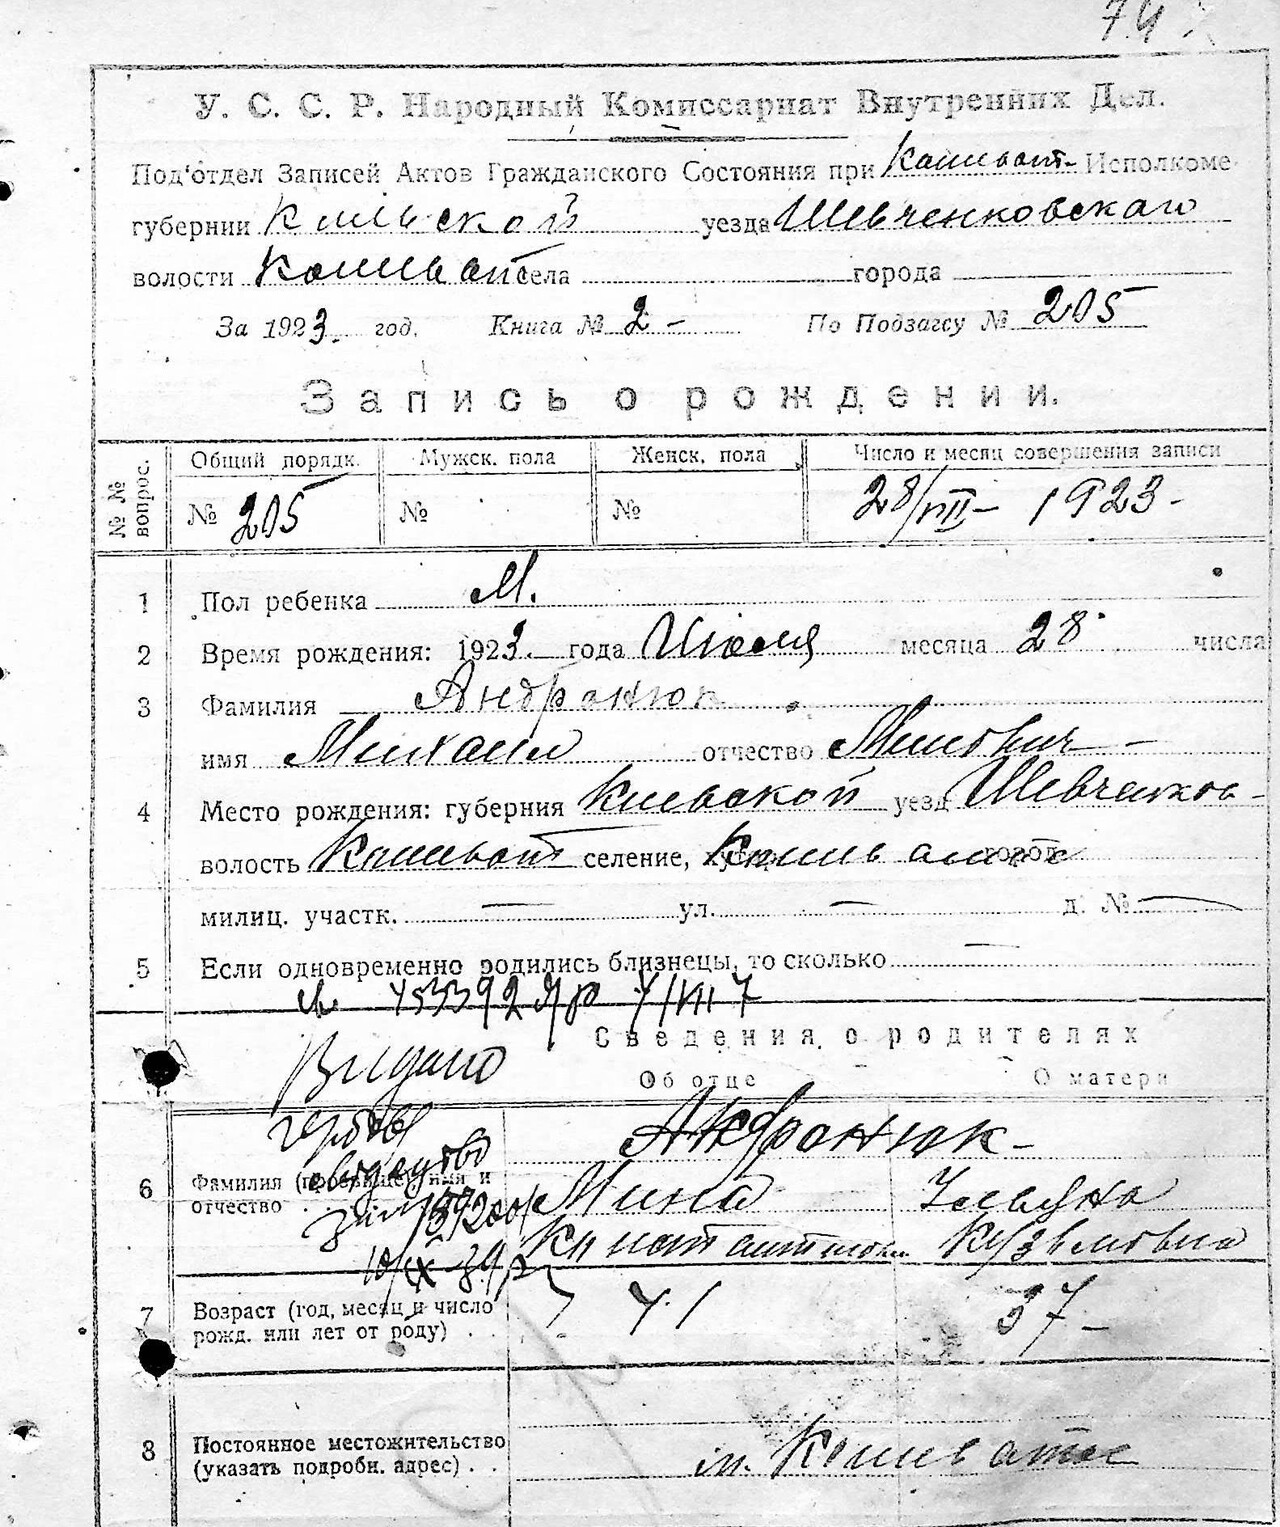 74
У. С. С. Р. Народный Комиссариат Внутренних Дел.
Под'отдел Записей Актов Гражданского Состояния при Кошеват- Исполкоме
губернии Киевской уезда Шевченковскаго
волости Кошеват села города
За 1923. год. Книга № 2 - По Подзагсу № 205
Запись о рождении.
№ № вопрос. Общий порядк. Мужск. пола Женск. пола Число и месяц совершения записи
№ 205 № № 28/VII- 1923-
1 Пол ребенка М.
2 Время рождения: 1923. года Июля месяца 28 числа
3 Фамилия Андронюк
имя Михаил отчество Минович -
4 Место рождения: губерния Киевской уезд Шевченков-
волость Кошеват селение, Кошеватое город
милиц. участк. — ул. — д. № —
5 Если одновременно родились близнецы, то сколько —
Сведения о родителях
Видано
Об отце О матери
гербове
Андронюк-
свидоцтво
6 Фамилия (прозвище) имя и отчество . Мина Ульяна
Константинов. Кузьмовна
10/IX 39 р
7 Возраст (год, месяц и число рожд. или лет от роду) . . 41 37-
8 Постоянное местожительство (указать подробн. адрес) . . м. Кошеватое